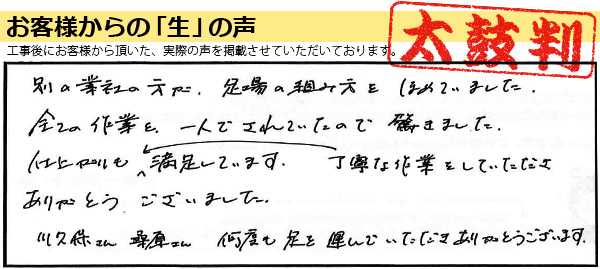 お客様からの「生」の声
太鼓判
工事後にお客様から頂いた、実際の声を掲載させていただいております。
別の業社の方が、足場の組み方を ほめていました。
全ての作業を、一人でされていたので 驚きました。
仕上がりも 満足しています。 丁寧な作業をしていただき
ありがとう ございました。
川久保さん 桑原さん 何度も足を運んでいただきありがとうございます。